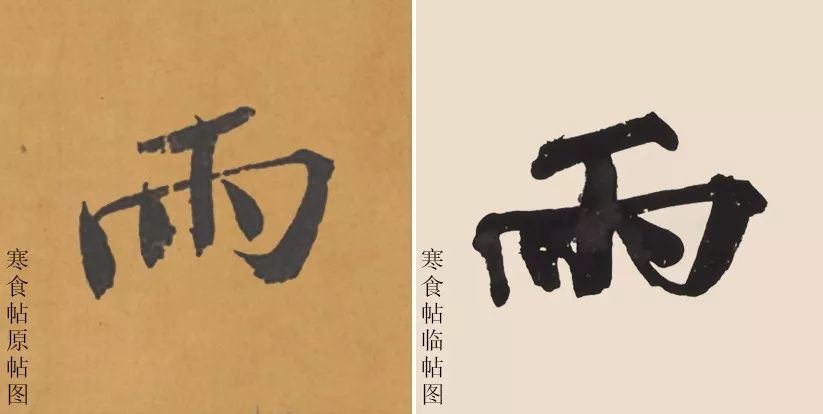 雨
寒食帖原帖图
雨
寒食帖临帖图